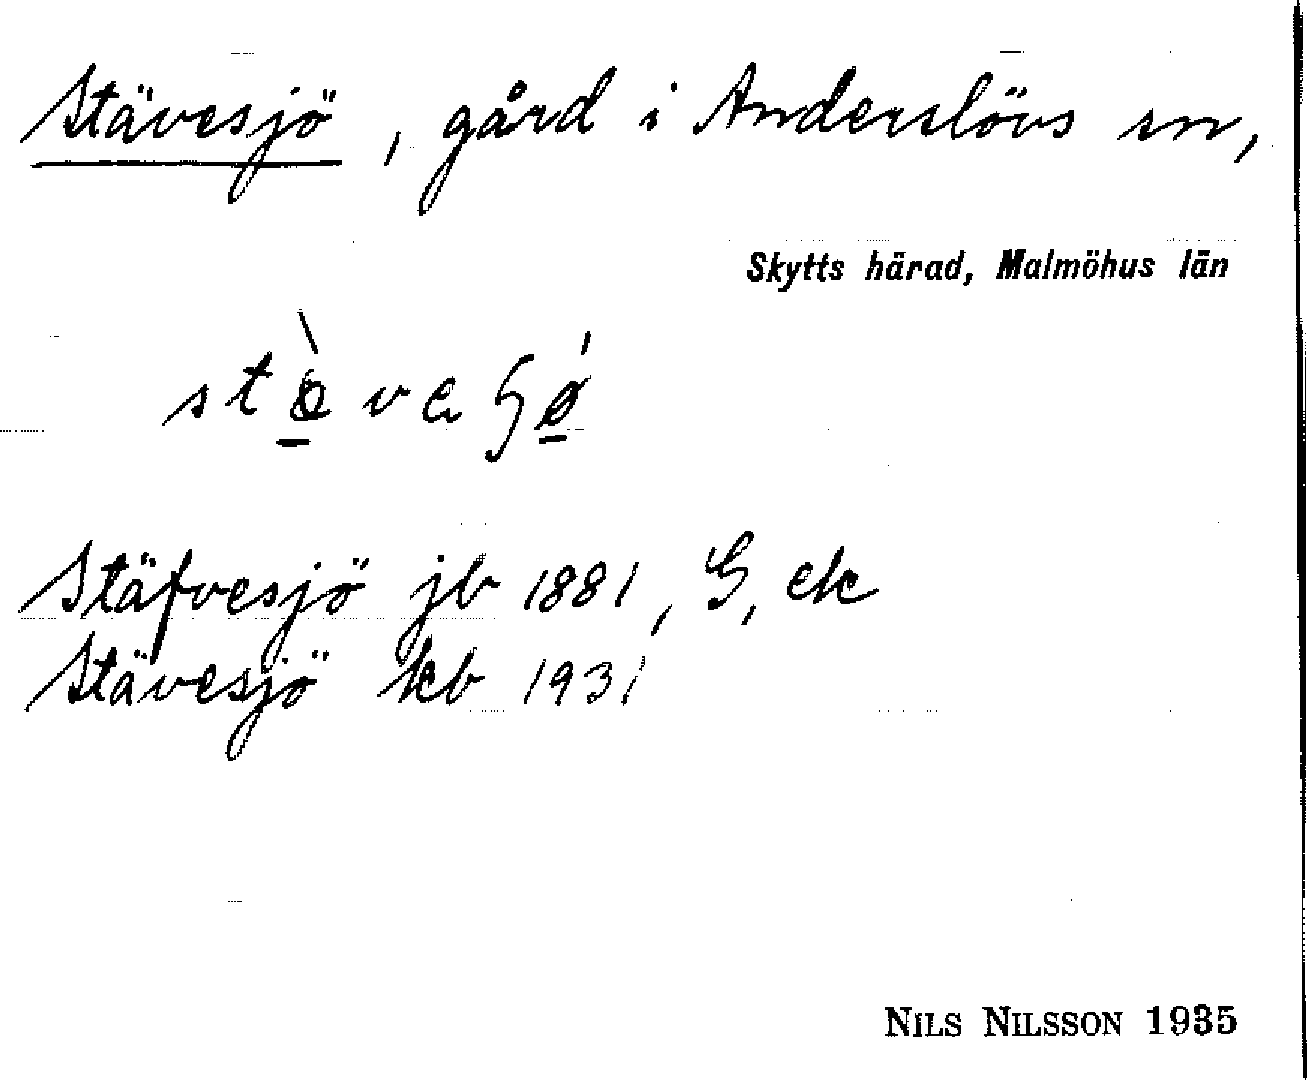 Stävesjö, gård i Anderslövs sn,
Skytts härad, Malmöhus län
Stäfvesjö jb 1881, G, ek
Stävesjö kb 1931
NILS NILSSON 1935